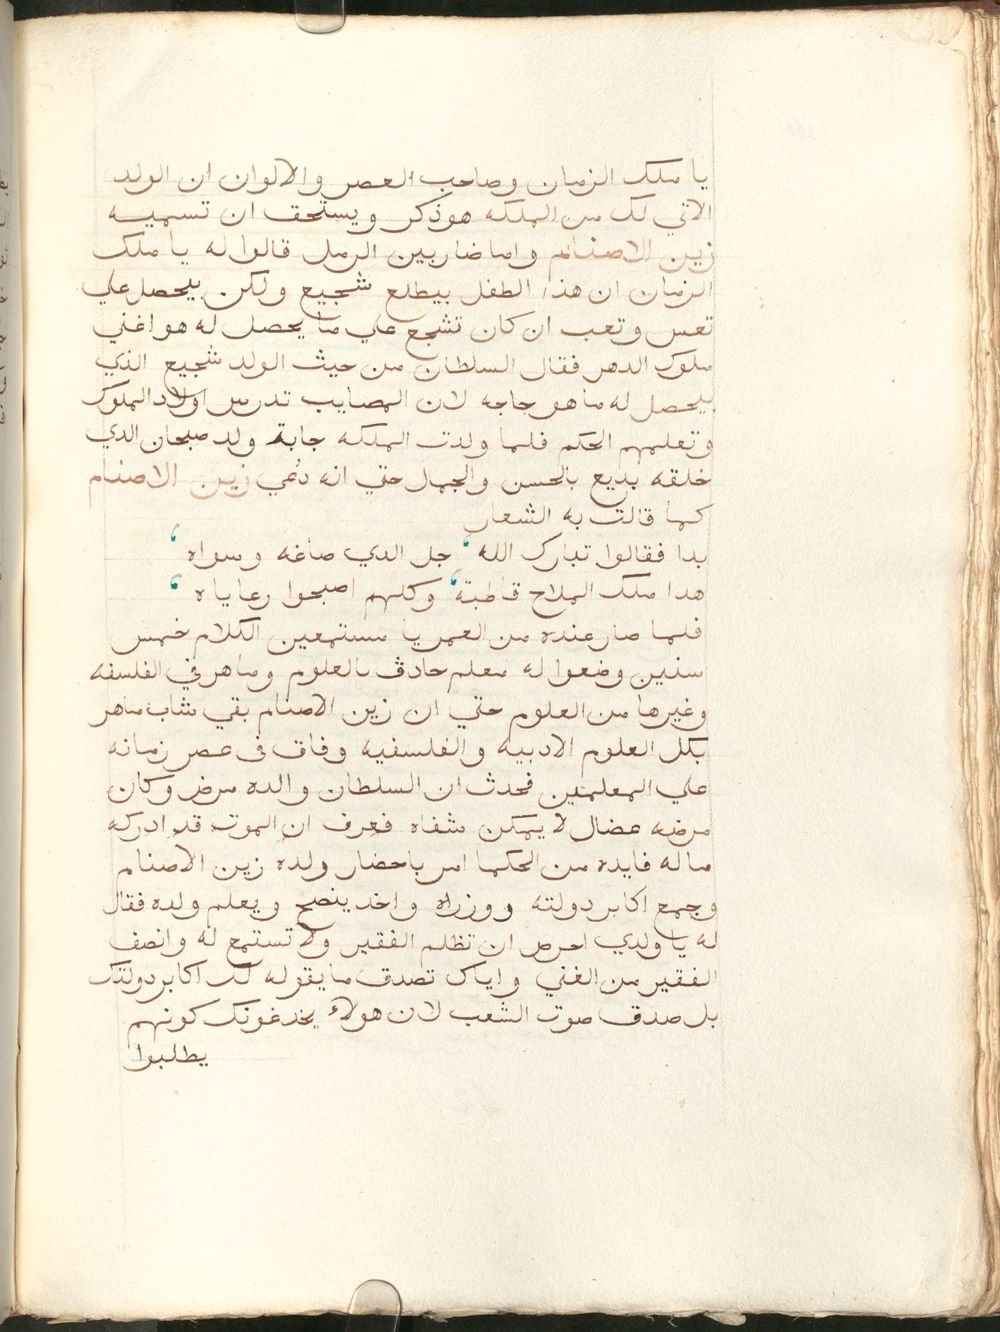 يا ملك الزمان وصاحب العصر والالوان ان الولد
الاتي لك من الملكه هو ذكر ويستحق ان تسميه
زين الاصنام واما ضاربين الرمل قالوا له يا ملك
الزمان ان هذا الطفل بيطلع شجيع ولكن بيحصل علي
تعس وتعب ان كان تشجع علي ما يحصل له هو اغني
ملوك الدهر فقال السلطان من حيث الولد شجيع الذي
بيحصل له ما هو حاجه لان المصايب تدرس اولاد الملوك
وتعلمهم الحكم فلما ولدت الملكه جابة ولد صبحان الدي
خلقه بديع بالحسن والجمال حتي انه دعي زين الاصنام
كما قالت به الشعار
بدا فقالوا تبارك الله ، جل الدي صاغه وسواه ،
هدا ملك الملاح قاطبة ، وكلهم اصبحوا رعاياه ،
فلما صار عنده من العمر يا مستمعين الكلام خمس
سنين وضعوا له معلم حادق بالعلوم وماهر في الفلسفه
وغيرها من العلوم حتي ان زين الاصنام بقي شاب ماهر
بكل العلوم الادبيه والفلسفيه وفاق في عصر زمانه
علي المعلمين فحدث ان السلطان والده مرض وكان
مرضه عضال لا يمكن شفاه فعرف ان الموت قد ادركه
ما له فايده من الحكما امر باحضار ولده زين الاصنام
وجمع اكابر دولته ووزراه واخد ينصح ويعلم ولده فقال
له يا ولدي احرص ان تظلم الفقير ولا تستمع له وانصف
الفقير من الغني واياك تصدق ما يقوله لك اكابر دولتك
بل صدق صوت الشعب لان هولاء يخدعونك كونهم
يطلبوا